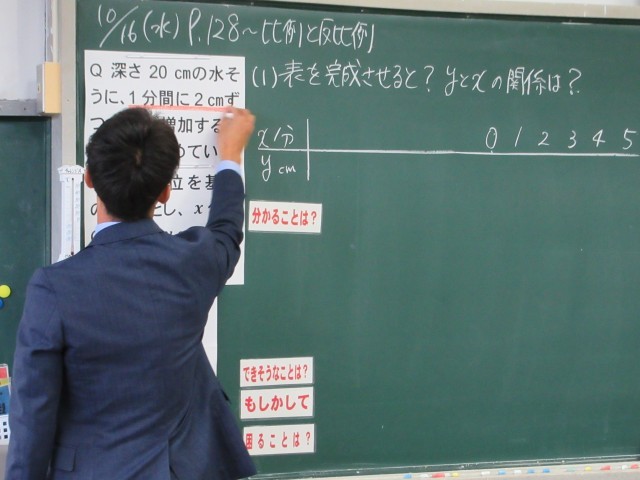 10/16(水) P.128~比例と反比例
Q 深さ 20 cmの水そ
うに、1分間に2cmず
つ
増加する
めてい
位を基
とし、x
(1) 表を完成させると? yとxの関係は?
x分 0 1 2 3 4 5
y cm
分かることは?
できそうなことは?
もしかして
困ることは?